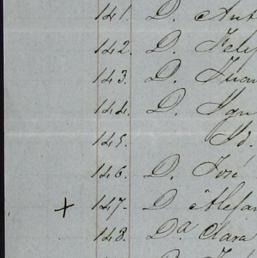 141. D. Ant
142. D. Fely
143. D. Juan
144. D. Ygn
145. Id.
146. D. José
+ 147. D Alejan
148. Dª Clara